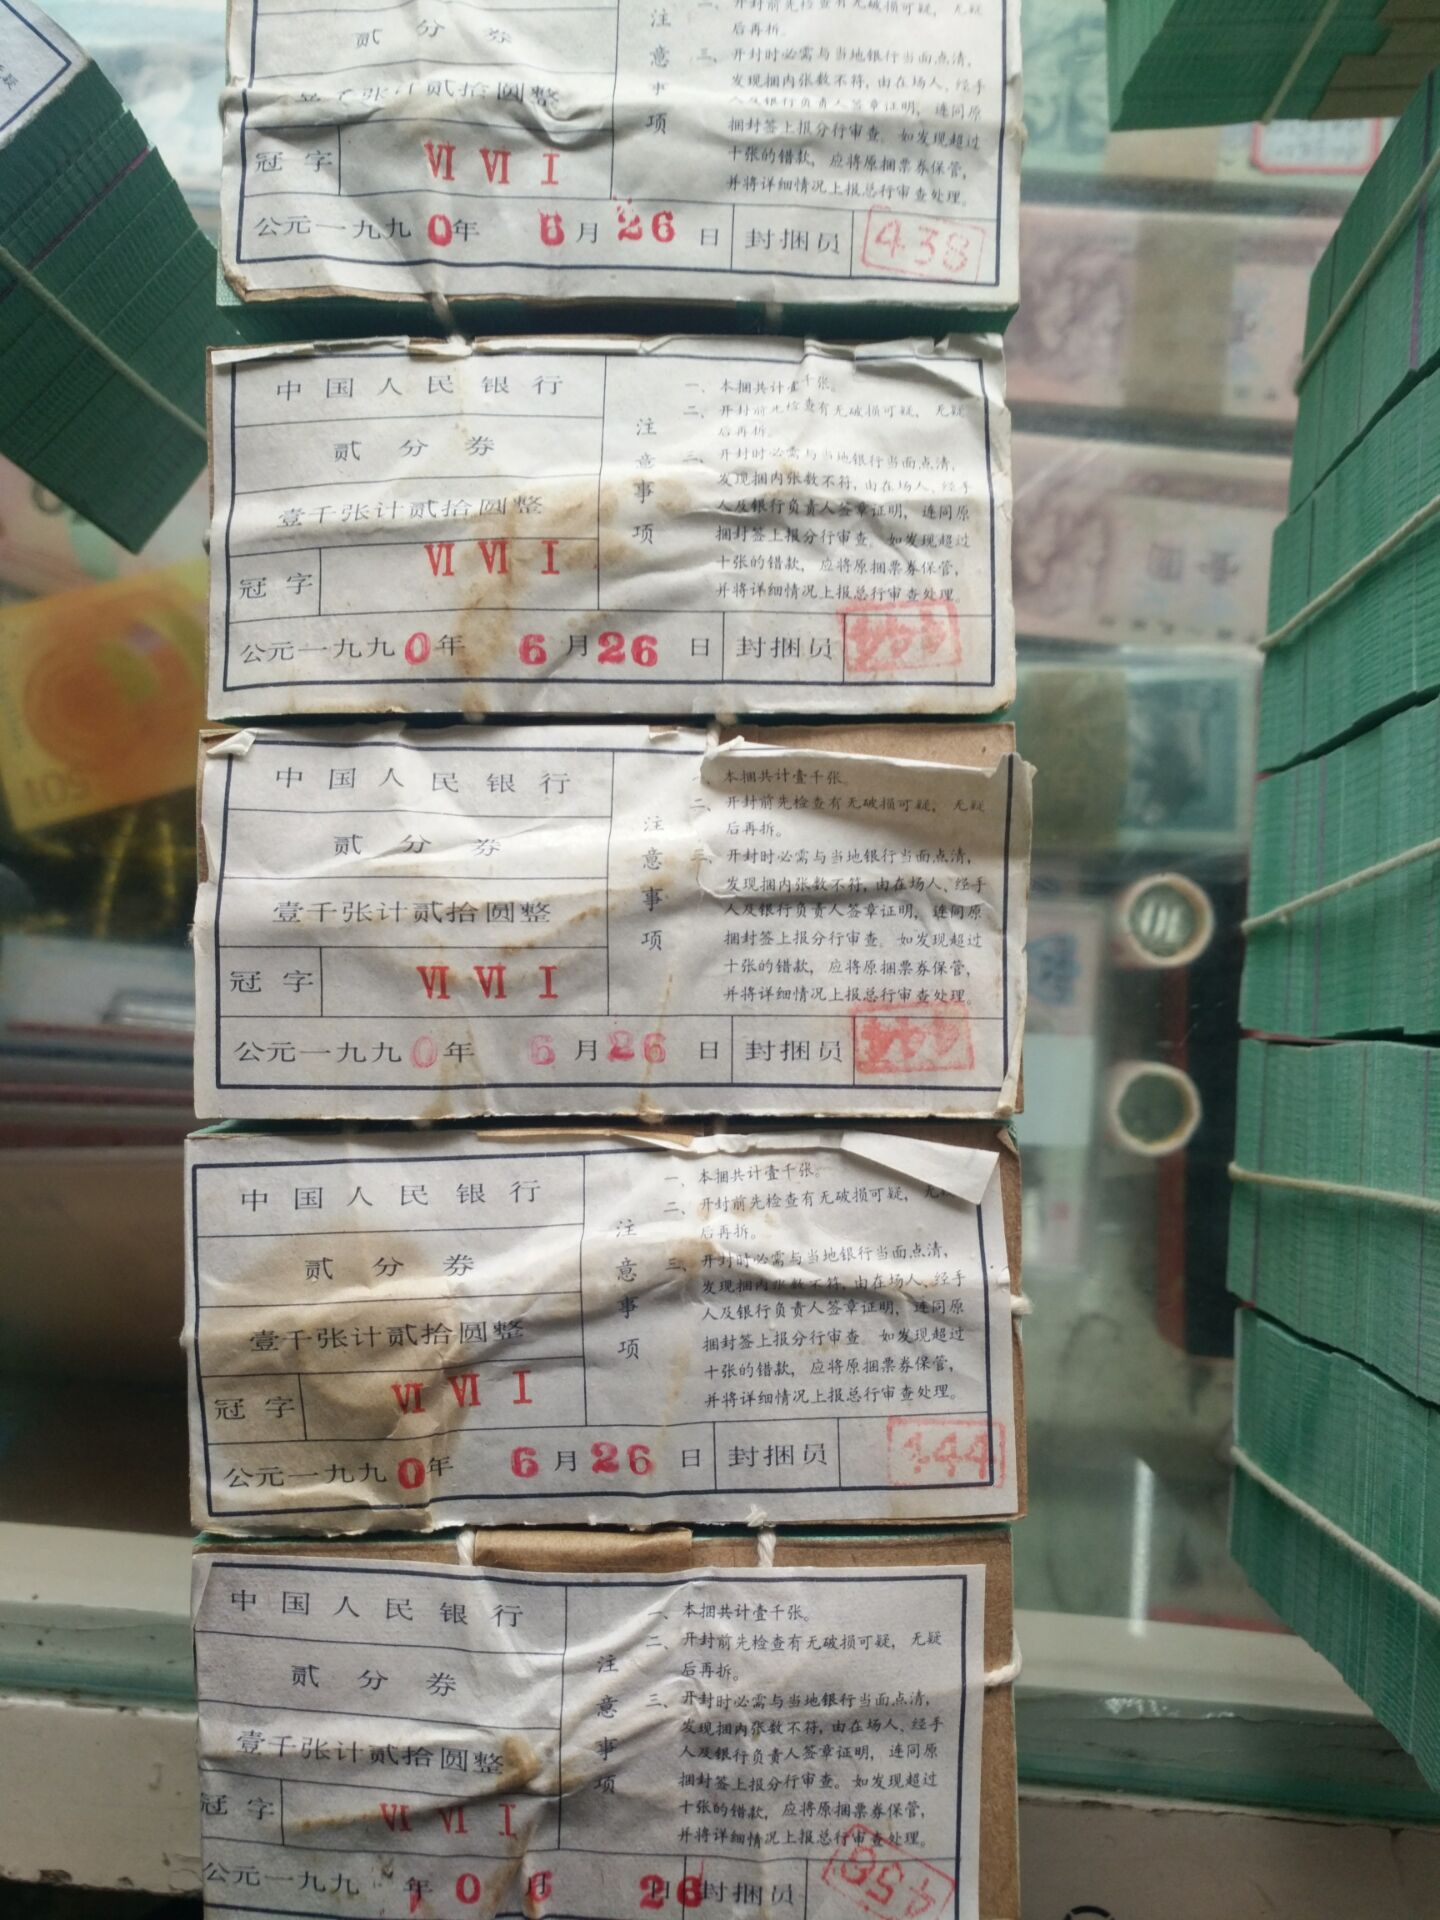 贰分券
壹千张计贰拾圆整
冠字 Ⅵ Ⅵ Ⅰ
公元一九九0年 6月26日 封捆员 438
注意事项
二、开封前先检查有无破损可疑，无疑
后再拆。
三、开封时必需与当地银行当面点清，
发现捆内张数不符，由在场人、经手
人及银行负责人签章证明，连同原
捆封签上报分行审查。如发现超过
十张的错款，应将原捆票券保管，
并将详细情况上报总行审查处理。
中国人民银行
贰分券
壹千张计贰拾圆整
冠字 Ⅵ Ⅵ Ⅰ
公元一九九0年 6月26日 封捆员
注意事项
一、本捆共计壹千张。
二、开封前先检查有无破损可疑，无疑
后再拆。
三、开封时必需与当地银行当面点清，
发现捆内张数不符，由在场人、经手
人及银行负责人签章证明，连同原
捆封签上报分行审查。如发现超过
十张的错款，应将原捆票券保管，
并将详细情况上报总行审查处理。
中国人民银行
贰分券
壹千张计贰拾圆整
冠字 Ⅵ Ⅵ Ⅰ
公元一九九0年 6月26日 封捆员
注意事项
一、本捆共计壹千张。
二、开封前先检查有无破损可疑，无疑
后再拆。
三、开封时必需与当地银行当面点清，
发现捆内张数不符，由在场人、经手
人及银行负责人签章证明，连同原
捆封签上报分行审查。如发现超过
十张的错款，应将原捆票券保管，
并将详细情况上报总行审查处理。
中国人民银行
贰分券
壹千张计贰拾圆整
冠字 Ⅵ Ⅵ Ⅰ
公元一九九0年 6月26日 封捆员 444
注意事项
一、本捆共计壹千张。
二、开封前先检查有无破损可疑，无
后再拆。
三、开封时必需与当地银行当面点清，
发现捆内张数不符，由在场人、经手
人及银行负责人签章证明，连同原
捆封签上报分行审查。如发现超过
十张的错款，应将原捆票券保管，
并将详细情况上报总行审查处理。
中国人民银行
贰分券
壹千张计贰拾圆整
冠字 Ⅵ Ⅵ Ⅰ
公元一九九 年0 6月 26日 封捆员 458
注意事项
一、本捆共计壹千张。
二、开封前先检查有无破损可疑，无疑
后再拆。
三、开封时必需与当地银行当面点清，
发现捆内张数不符，由在场人、经手
人及银行负责人签章证明，连同原
捆封签上报分行审查。如发现超过
十张的错款，应将原捆票券保管，
并将详细情况上报总行审查处理。